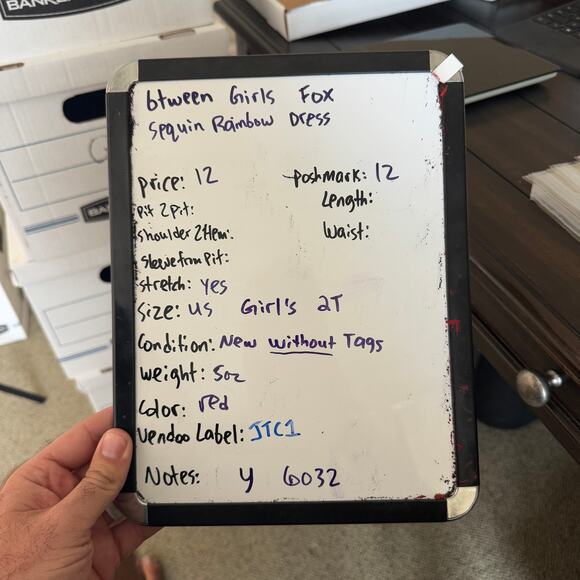 btween Girls Fox
Sequin Rainbow Dress
price: 12
poshmark: 12
Pit 2 Pit:
Length:
Shoulder 2 Hem:
Waist:
Sleeve from Pit:
Stretch: yes
Size: US Girl's 2T
Condition: New without Tags
Weight: 5oz
Color: red
Vendoo Label: JTC1
Notes: y 6032